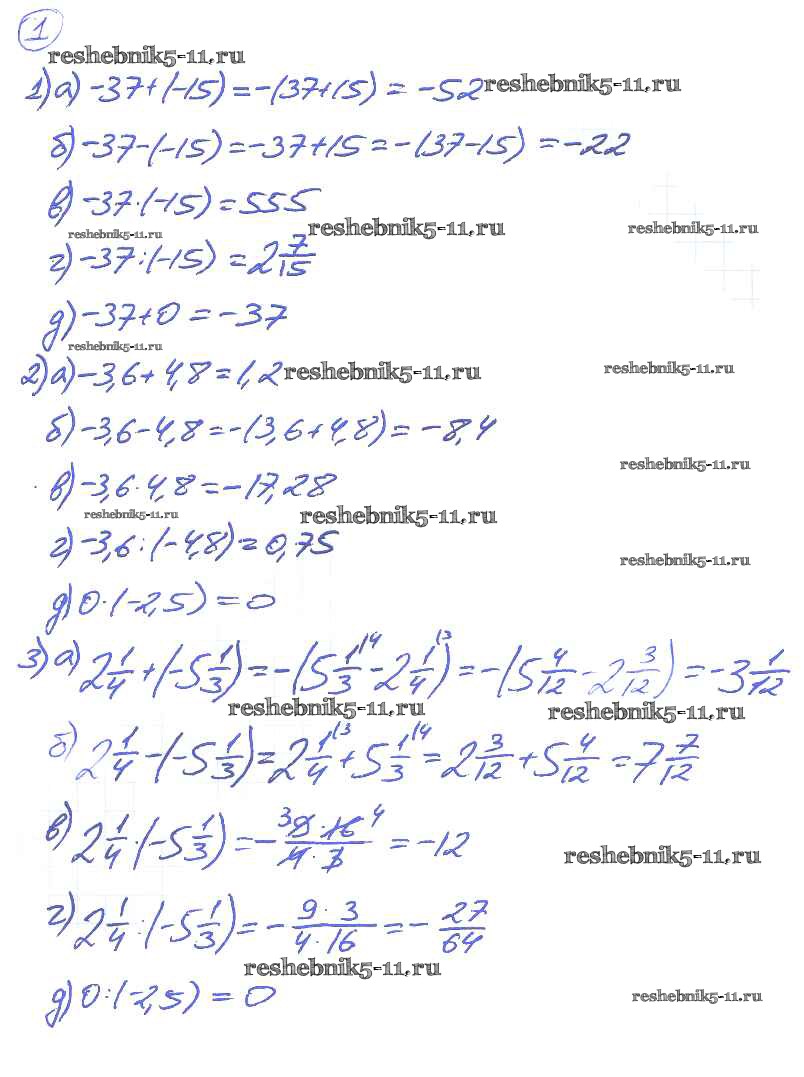 1
reshebnik5-11.ru
1) а) -37+(-15) = -(37+15) = -52 reshebnik5-11.ru
б) -37-(-15) = -37+15 = -(37-15) = -22
в) -37·(-15) = 555
reshebnik5-11.ru reshebnik5-11.ru reshebnik5-11.ru
г) -37:(-15) = 2 7/15
д) -37+0 = -37
reshebnik5-11.ru
2) а) -3,6+4,8 = 1,2 reshebnik5-11.ru reshebnik5-11.ru
б) -3,6-4,8 = -(3,6+4,8) = -8,4
reshebnik5-11.ru
в) -3,6·4,8 = -17,28
reshebnik5-11.ru reshebnik5-11.ru
г) -3,6:(-4,8) = 0,75
reshebnik5-11.ru
д) 0·(-2,5) = 0
3) а) 2 1/4 + (-5 1/3) = -(5 1/3 (4 - 2 1/4 (3) = -(5 4/12 - 2 3/12) = -3 1/12
reshebnik5-11.ru reshebnik5-11.ru
б) 2 1/4 - (-5 1/3) = 2 1/4 (3 + 5 1/3 (4 = 2 3/12 + 5 4/12 = 7 7/12
в) 2 1/4 · (-5 1/3) = - 3 9·16 4 / 4·3 = -12
reshebnik5-11.ru
г) 2 1/4 : (-5 1/3) = - 9·3 / 4·16 = - 27/64
reshebnik5-11.ru
д) 0:(-2,5) = 0
reshebnik5-11.ru